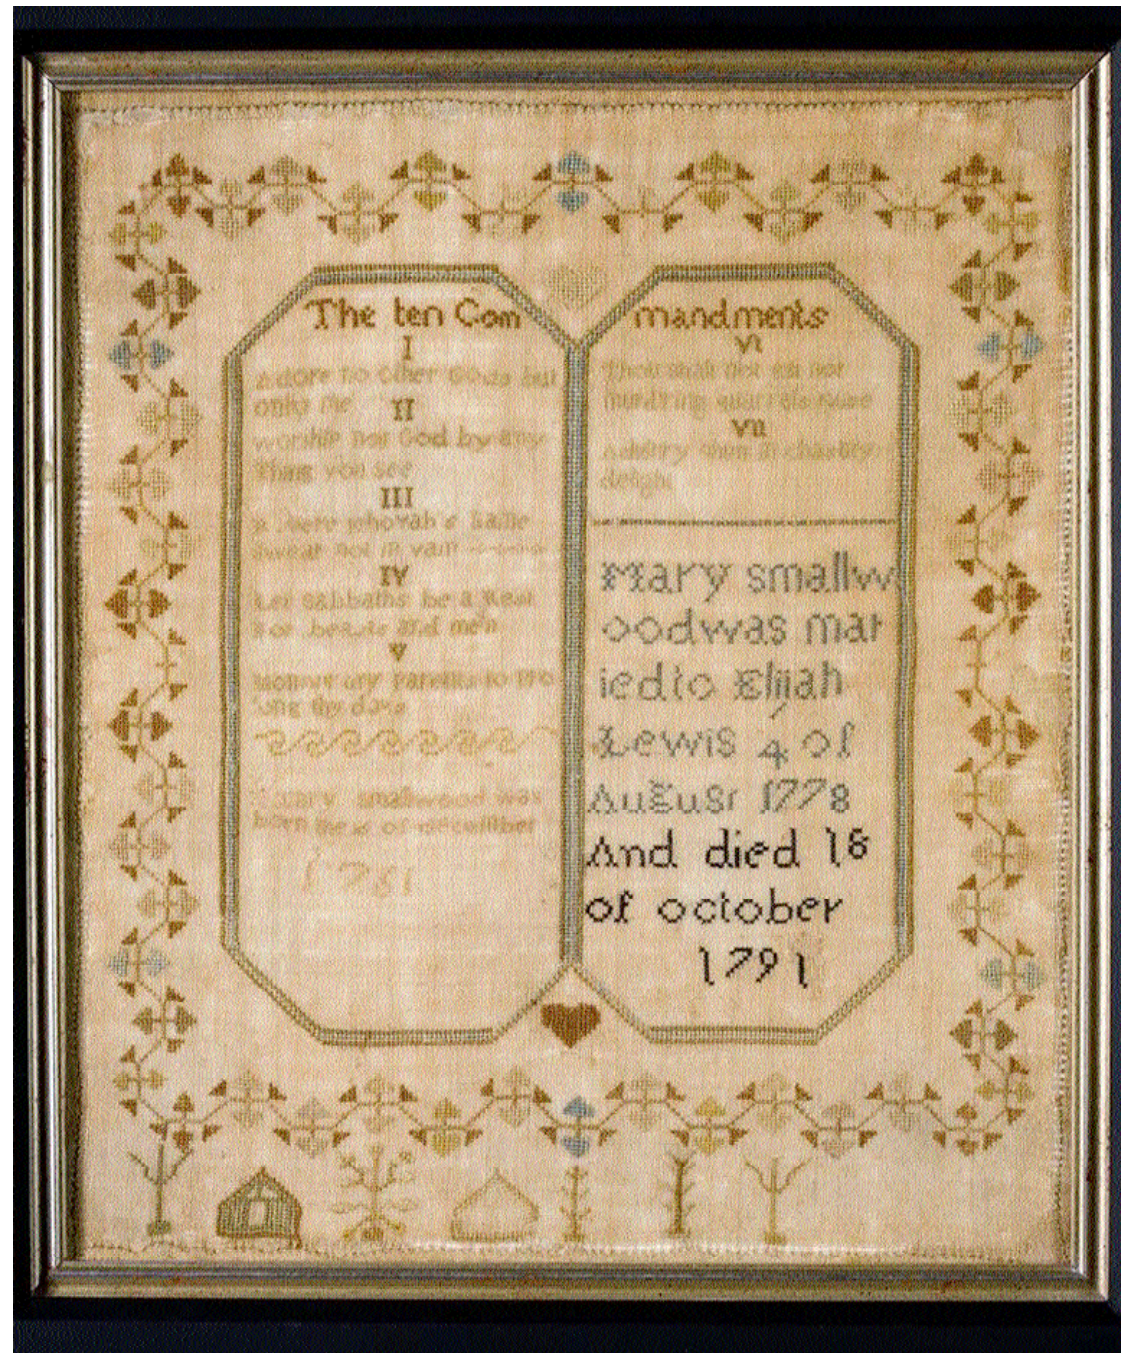 The ten Com
I
Adore no other Gods but
only me
II
worship not God by any
Thing you see
III
Revere Jehovah's name
swear not in vain
IV
Let sabbaths be a Rest
For beasts and men
V
Honour thy Parents to pro
long thy days
Mary smallwood was
born the of december
1761
mandments
VI
Thou shalt not nor
murdring quarrels
VII
Adultry shun in chastity
delight
Mary smallw
oodwas mar
iedto Elijah
Lewis 4 of
August 1778
And died 18
of october
1791